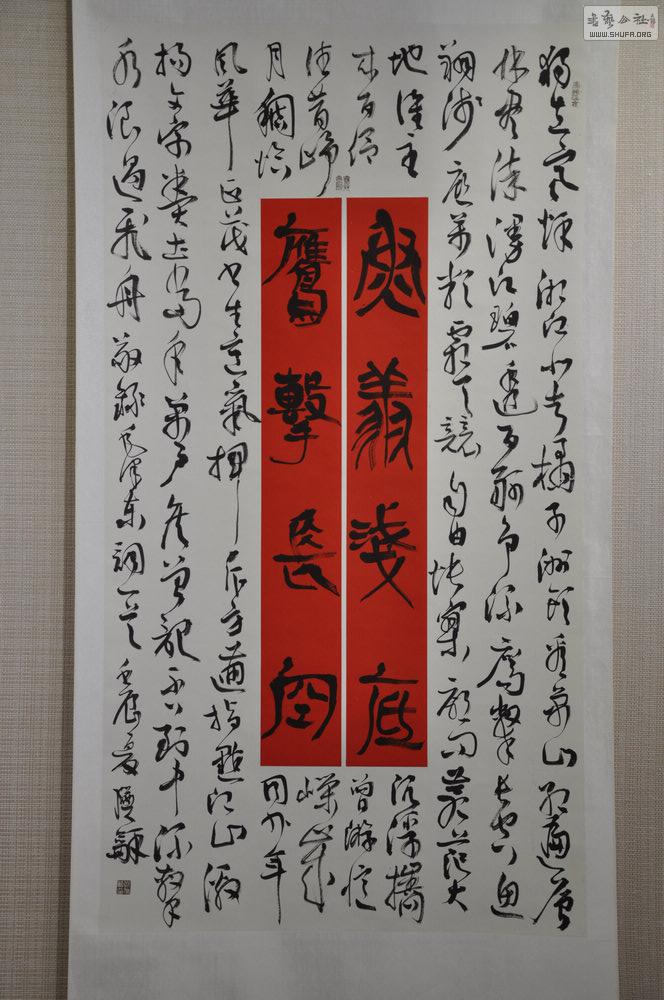 獨立寒秋湘江北去橘子洲頭看萬山紅遍層
林盡染漫江碧透百舸爭流鷹擊長空魚
翔淺底萬類霜天競自由悵寥廓問蒼茫大
地誰主
沉浮攜
來百侶
曾游憶
往昔崢
嶸歲
月稠恰
同學少年
風華正茂書生意氣揮斥方遒指點江山激
揚文字糞土當年萬戶侯曾記否到中流擊
水浪遏飛舟敬錄毛澤東詞一首壬辰夏
魚翔淺底
鷹擊長空
書藝公社
WWW.SHUFA.ORG